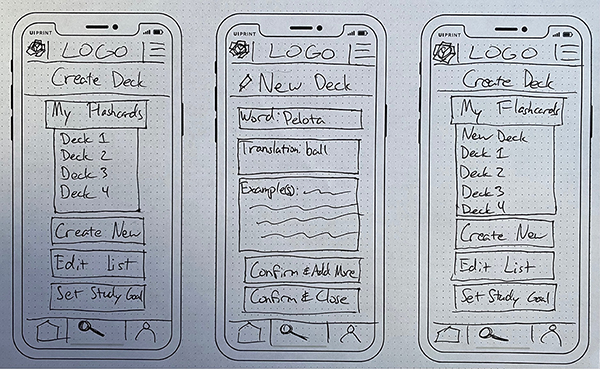 UI PRINT
LOGO
Create Deck
My Flashcards
Deck 1
Deck 2
Deck 3
Deck 4
Create New
Edit List
Set Study Goal
UI PRINT
LOGO
New Deck
Word: Pelota
Translation: ball
Example(s):
Confirm & Add More
Confirm & Close
UI PRINT
LOGO
Create Deck
My Flashcards
New Deck
Deck 1
Deck 2
Deck 3
Deck 4
Create New
Edit List
Set Study Goal